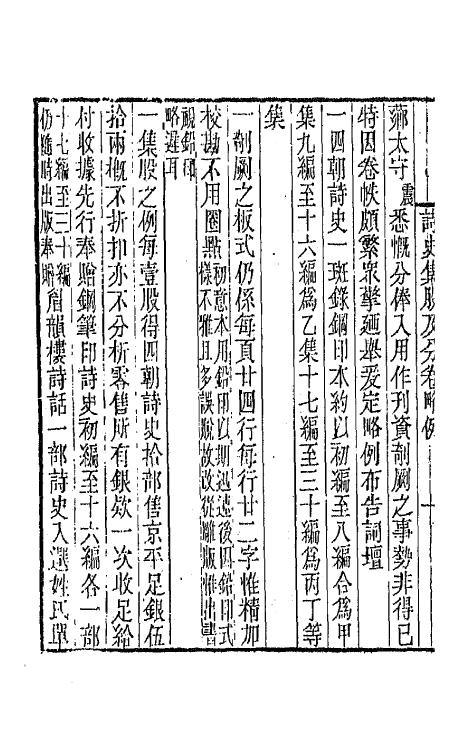 詩史集股及分卷略例　一
薌太守震悉慨分俸入用作刊資剞劂之事勢非得已
特因卷帙頗繁衆擎迺舉爰定略例布告詞壇
一四朝詩史一斑錄鋼印本約以初編至八編合爲甲
集九編至十六編爲乙集十七編至三十編爲丙丁等
集
一剞劂之板式仍係每頁廿四行每行廿二字惟精加
校勘不用圈點初意本用鉛印以期迅速後因鉛印式
樣不雅且多誤脫故改從雕版惟出書
視鉛印
略遲耳
一集股之例每壹股得四朝詩史拾部售京平足銀伍
拾兩概不折扣亦不分析零售所有銀欵一次收足給
付收據先行奉贈鋼筆印詩史初編至十六編各一部
十七編至三十編
仍隨時出版奉贈眉韻樓詩話一部詩史入選姓氏單